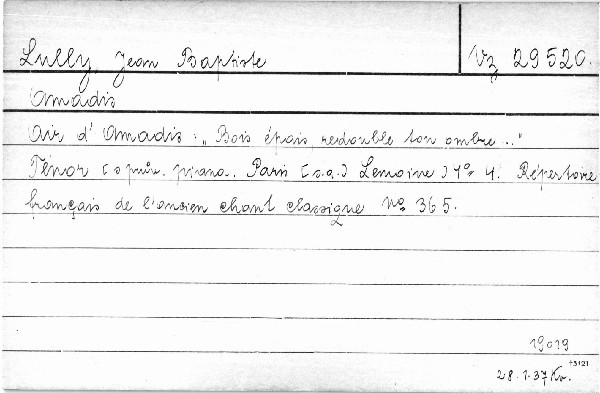 Lully Jean Baptiste
Vz 29520.
Amadis
Air d'Amadis: „Bois épais, redouble ton ombre..."
Ténor [s prův. piana. Paris [s.a.] Lemoine] 4°- 4. Répertoire
français de l'ancien chant classique No 365.
19019
+3121
28.1.37 Kv.